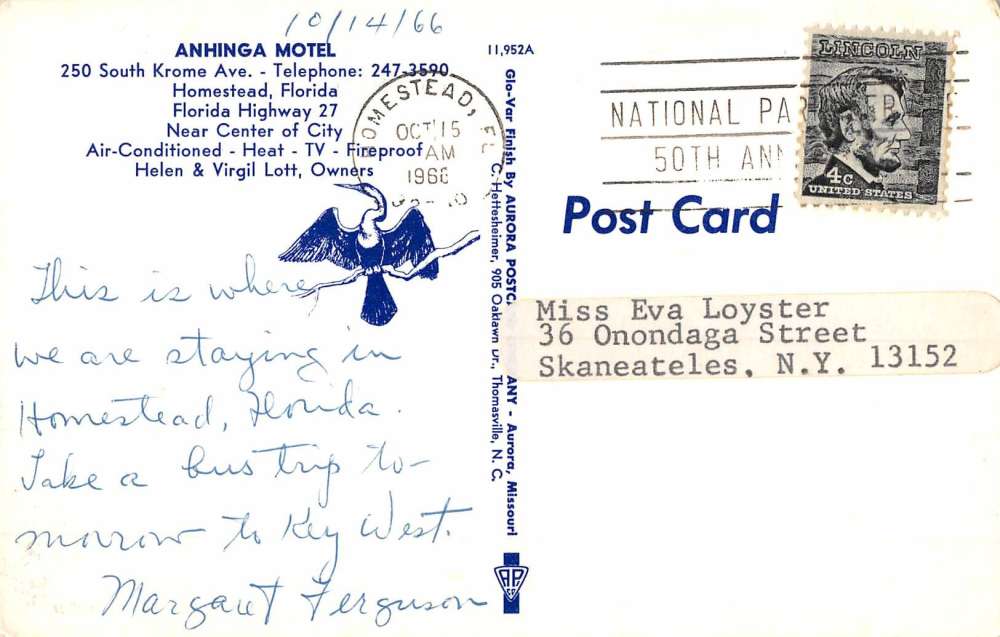 10/14/66
ANHINGA MOTEL
250 South Krome Ave. - Telephone: 247-3590
Homestead, Florida
Florida Highway 27
Near Center of City
Air-Conditioned - Heat - TV - Fireproof
Helen & Virgil Lott, Owners
This is where
we are staying in
Homestead, Florida.
Take a bus trip to-
morrow to Key West.
Margaret Ferguson
11,952A
Glo-Var Finish By AURORA POSTC ANY - Aurora, Missouri
C. Hettesheimer, 905 Oaklawn Dr., Thomasville, N. C.
HOMESTEAD, FL
OCT 15
AM
1966
NATIONAL PA
50TH ANN
LINCOLN
4c
UNITED STATES
Post Card
Miss Eva Loyster
36 Onondaga Street
Skaneateles, N.Y. 13152